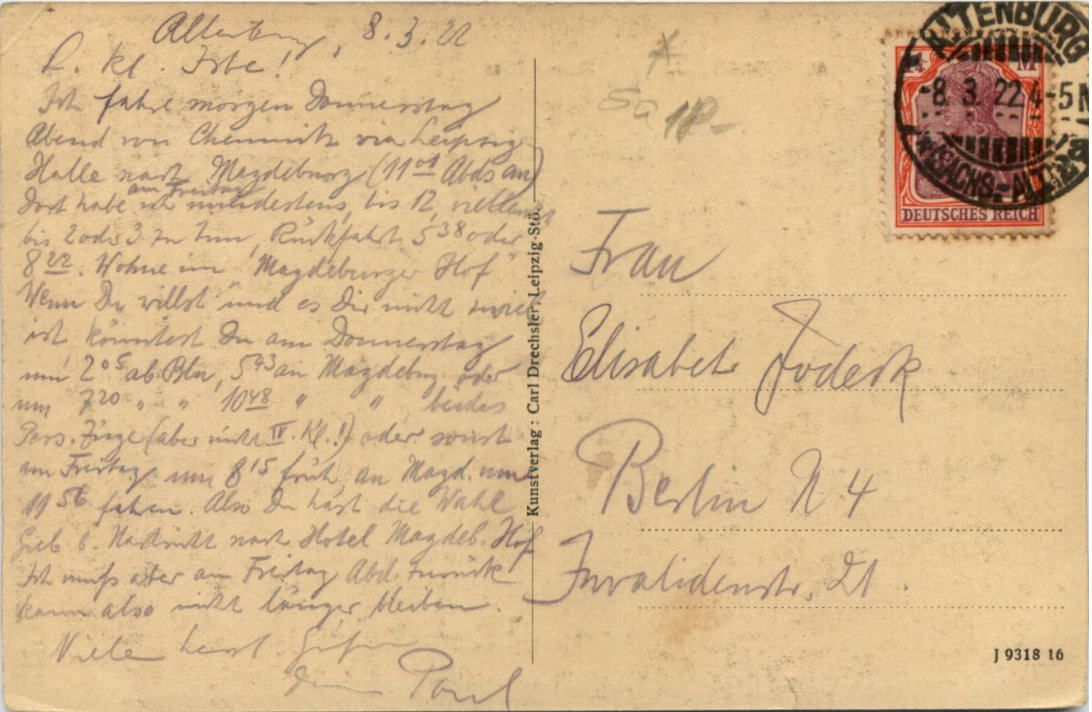 Altenburg, 8.3.22
L. kl. Irbe!
Ich fahre morgen Donnerstag
Abend von Chemnitz via Leipzig
Halle nach Magdeburg (11 01 Abds an)
am Freitag
Dort habe ich mindestens bis 12, vielleicht
bis 2 ods 3 zu tun, Rückfahrt 5 38 oder
8 22. Wohne im "Magdeburger Hof"
Wenn Du willst und es Dir nicht zuviel
ist könntest Du am Donnerstag
um 2 05 ab Bln, 5 43 an Magdebg. oder
um 7 20 " " 10 48 " " , beides
Pers. Züge (aber nicht IV. Kl.!) oder sonst
am Freitag um 8 15 früh, an Magd. um
11 56 fahren. Also Du hast die Wahl
Gieb b. Nachricht nach Hotel Magdeb. Hof
Ich muß aber am Freitag Abd. zurück
kann also nicht länger bleiben.
Viele herzl. Grüße
Dein Paul
Kunstverlag: Carl Drechsler, Leipzig-Stö.
18.-
ALTENBURG
-8.3.22.4-5N
(SACHS.-ALT.)
DEUTSCHES REICH
Frau
Elisabet Jodeck
Berlin N 4
Invalidenstr. 21.
J 9318 16